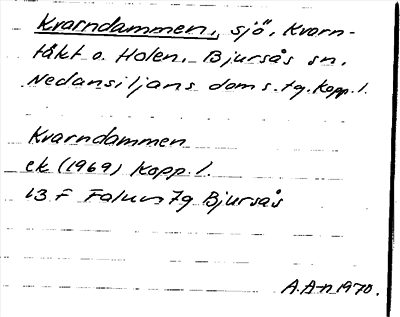 Kvarndammen, sjö, Kvarn-
täkt o. Holen, Bjursås sn,
Nedansiljans doms. tg. Kopp. l.
Kvarndammen
ek (1969) Kopp. l.
13 F Falun 7g Bjursås
A.A-n 1970.